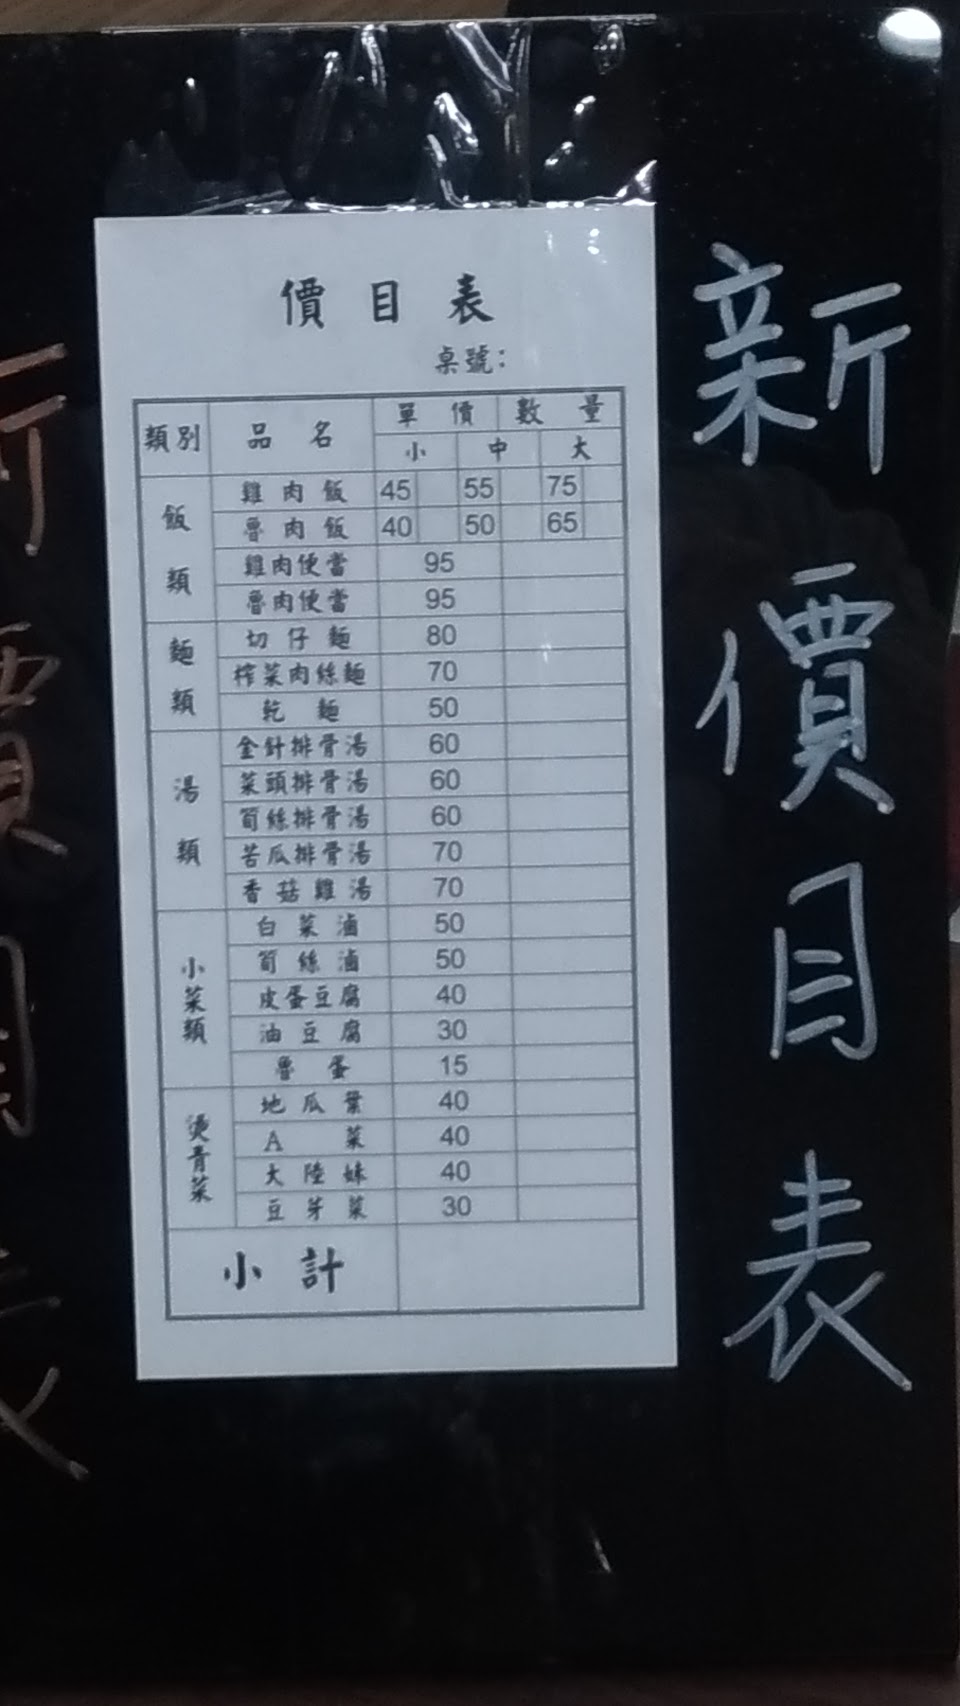 新價目表
價目表
桌號：
類別 品名 單價 數量
小 中 大
飯類
雞肉飯 45 55 75
魯肉飯 40 50 65
雞肉便當 95
魯肉便當 95
麵類
切仔麵 80
榨菜肉絲麵 70
乾麵 50
湯類
金針排骨湯 60
菜頭排骨湯 60
筍絲排骨湯 60
苦瓜排骨湯 70
香菇雞湯 70
小菜類
白菜滷 50
筍絲滷 50
皮蛋豆腐 40
油豆腐 30
魯蛋 15
燙青菜
地瓜葉 40
A菜 40
大陸妹 40
豆芽菜 30
小計